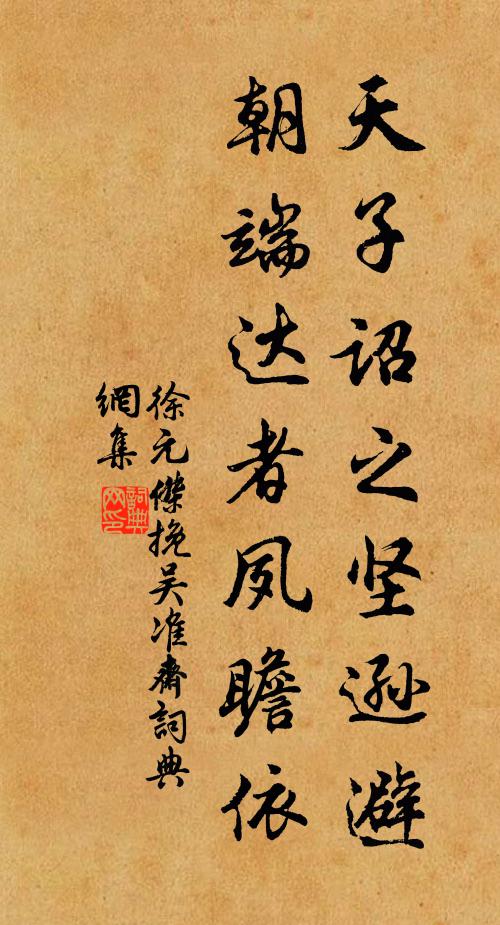 天子诏之坚逊避
朝端达者夙瞻依
徐元傑挽吴准齋詞典
網集
詞典
网印